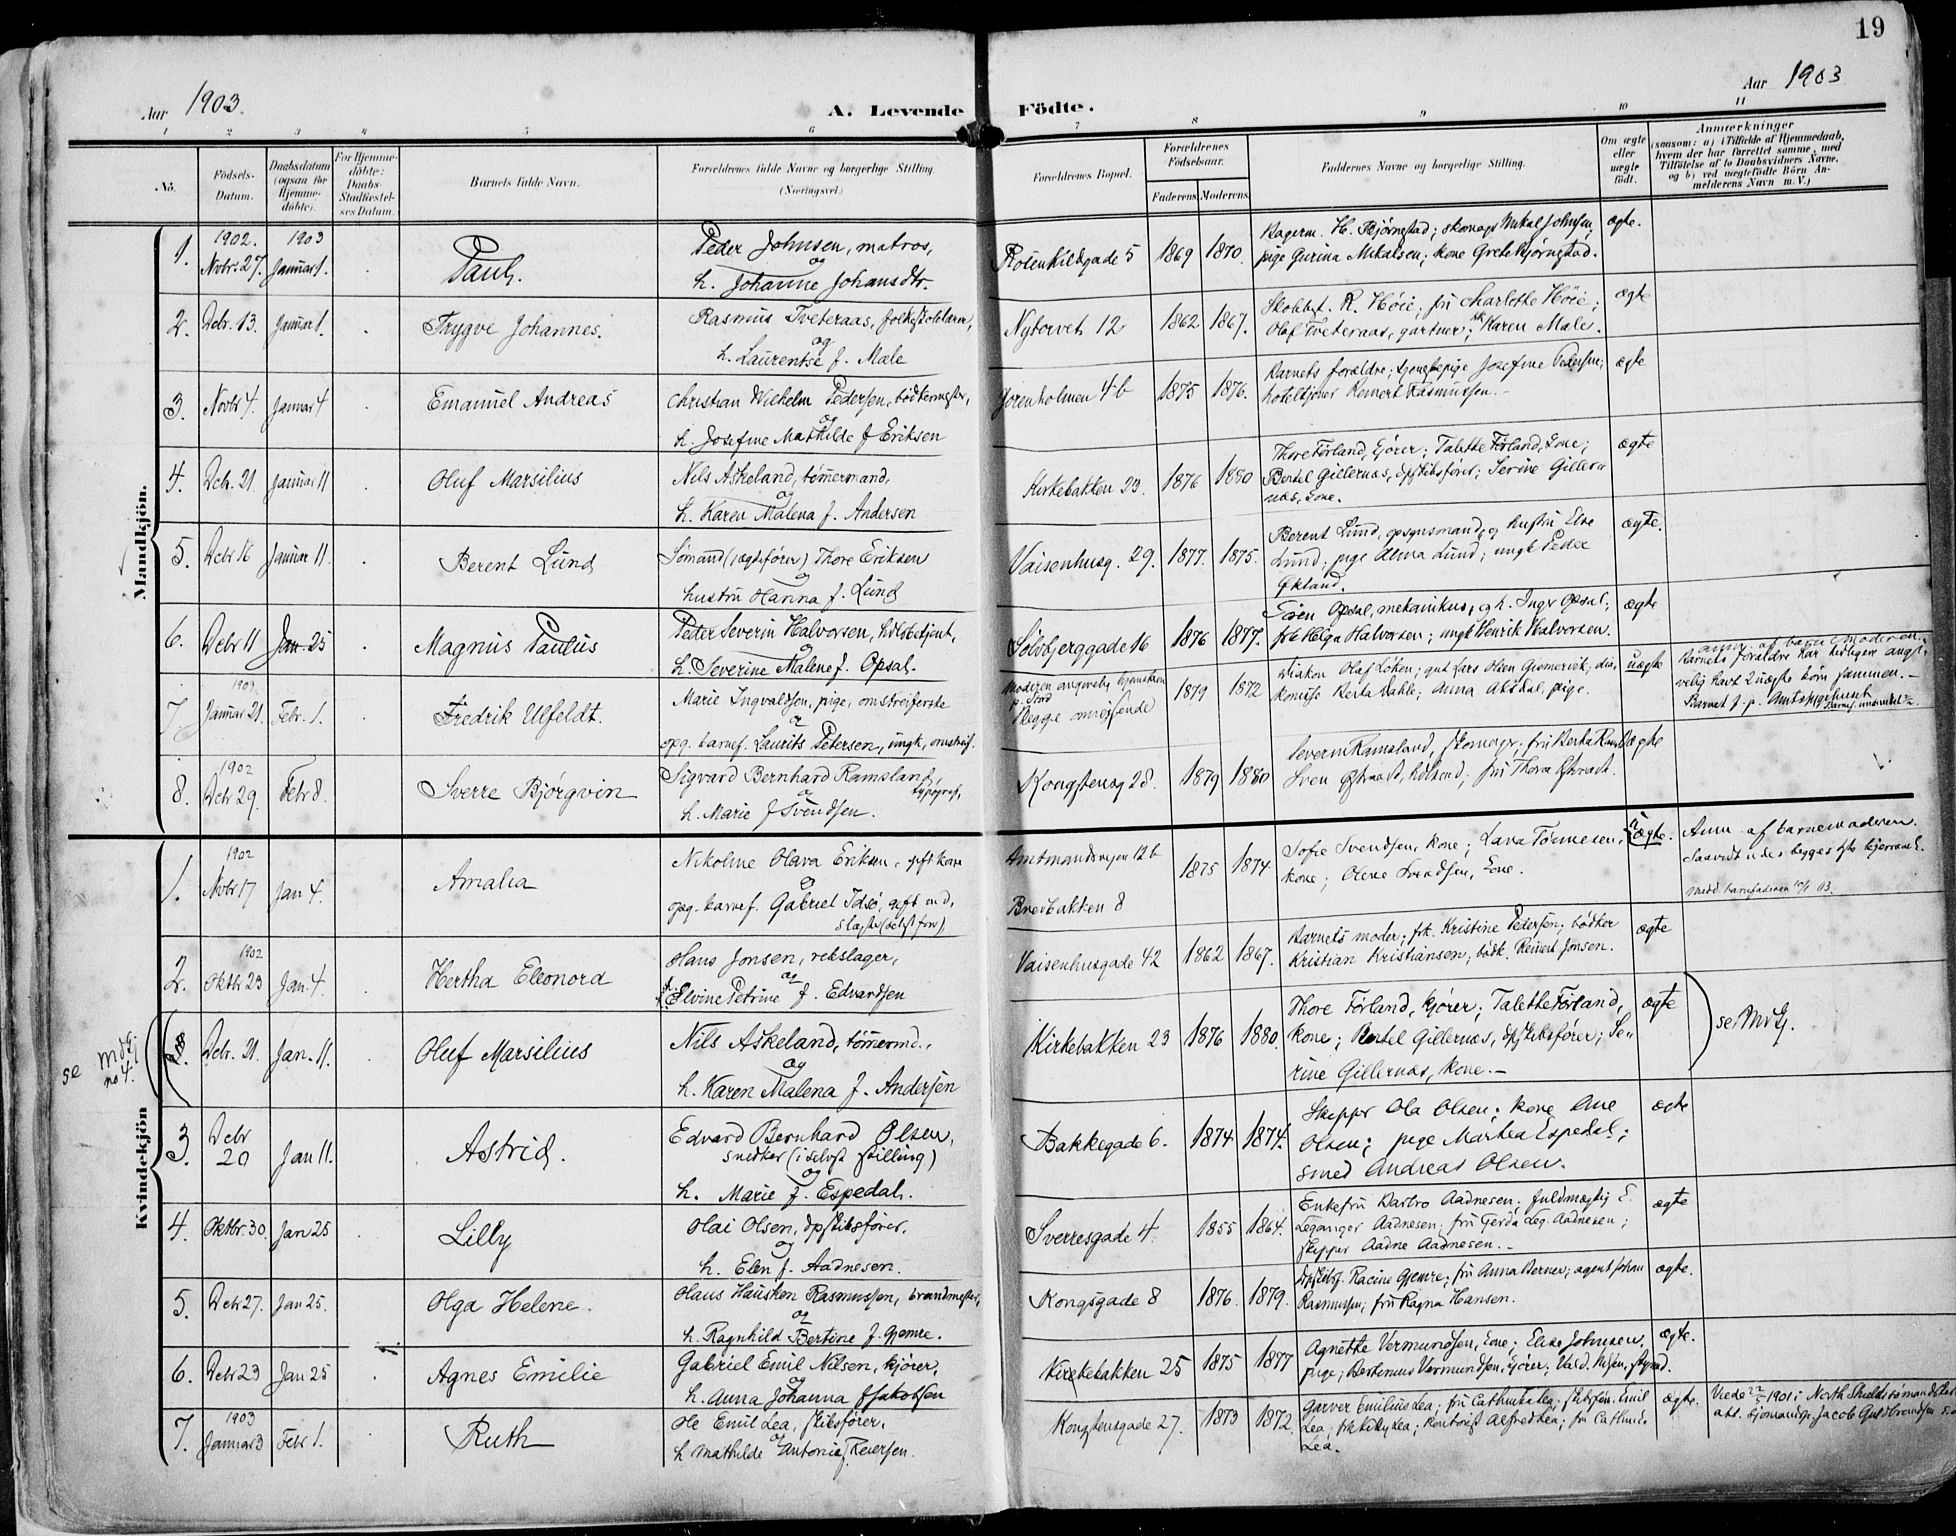 19
Aar 1903.
A. Levende Födte.
Aar 1903
1 2 3 4 5 6 7 8 9 10 11
No.
Födsels-Datum.
Daabsdatum (ogsaa for Hjemme-döbte).
For Hjemme-döbte: Daabs-Stadfæstel-ses Datum.
Barnets fulde Navn.
Forældrenes fulde Navne og borgerlige Stilling. (Næringsvei.)
Forældrenes Bopæl.
Forældrenes Födselsaar.
Faderens Moderens
Faddernes Navne og borgerlige Stilling.
Om ægte eller uægte födt.
Anmærkninger
(saasom: a) i Tilfælde af Hjemmedaab,
hvem der har forrettet samme, med
Tilföielse af to Daabsvidners Navne,
og b) ved uægtefödte Börn An-
melderens Navn m. V.)
Mandkjön.
1. 1902. Novbr. 27. 1903 Januar 1. Paul. Peder Johnsen, matros, og h. Johanne Johansdtr. Rosenkildgade 5 1869 1870. Bagerm. H. Bjørnestad; skomagr Mikal Johnsen;
pige Gurina Mikalsen; kone Grete Bjørnestad. ægte.
2. Debr. 13. Januar 1. Trygve Johannes. Rasmus Tveteraas, folkeskolelærer, og h. Laurentse f. Mæle Nytorvet 12 1862 1867. Skobest. R. Høie; fru Charlotte Høie;
Olaf Tveteraas, gartner; frk Karen Mæle. ægte
3. Novbr 4. Januar 4 Emanuel Andreas Christian Wilhelm Pedersen, bødkermester, og h. Josefine Mathilde f Eriksen Jorenholmen 4b 1875 1876. Barnets forældre; tjenestepige Josefine Pedersen;
hoteltjener Reinert Rasmussen. ægte
4. Debr. 21. Januar 11 Oluf Marsilius Nils Askeland, tømmermand, og h. Karen Malena f. Andersen Kirkebakken 23. 1876 1880 Thore Førland, kjører; Talette Førland, kone;
Bertel Gillernæs, dpskibsfører; Serine Giller-
næs, kone. ægte
5. Debr 16 Januar 11. Berent Lund Sømand (jagtefører) Thore Eriksen og hustru Hanna f. Lund Vaisenhusg. 29. 1877. 1875. Berent Lund, opsynsmand, og hustru Else
Lund; pige Alma Lund; ungk Peder
Økland. ægte.
6. Debr 11 Jan 25 Magnus Paulus Peter Severin Halvorsen, h. Severine Malene f. Opsal. Sølvberggade 16 1876 1877. Opsal, mekanikus, og h. Inger Opsal;
frk Helga Halvorsen; ungk Henrik Halvorsen. ægte
7. 1903. Januar 21. Febr. 1. Fredrik Ulfeldt. Marie Ingvaldsen, pige, omstreiferske og opg. barnef. Laurits Petersen, ungk, omstreif. Moderen
Begge omreisende 1879 1872 Diakon Olaf Løken; gut Lars Olsen dia-
konisse Berta Dahle; Anna Aksdal, pige. uægte
Barnets forældre har tidligere
havt 2 uægte børn sammen.
8. 1902 Debr 29. Febr 8. Sverre Bjørgvin Sigvard Bernhard Ramsland, typograf, og h. Marie f Svendsen. Kongstensg 28. 1879 1880 Severin Ramsland, skomagr; fru Berta
Sven fru Thora ægte
Kvindekjön
1. 1902 Novbr 17 Jan 4. Amalia Nikoline Olava Eriksen, gift kone og opg. barnef. Gabriel Idsø, gift md,
slagter (selvst forr). Amtmandsveien 12b
Breibakken 8 1875 1874 Sofie Svendsen, kone; Lava Tønnesen,
kone; Olene Svendsen, kone. uægte. Anm af barnemoderen.
2. 1902 Oktbr 23 Jan. 4. Hertha Eleonora Hans Jonsen, rebslager, og h. Elvine Petrine f. Edvardsen Vaisenhusgade 42 1862 1867. Barnets moder; frk. Kristine Pedersen; bødker
Kristian Kristiansen; bødk. Reinert Jonsen. ægte
se Mdkj no 4. Debr. 21 Jan. 11. Oluf Marsilius Nils Askeland, tømmermd., og h. Karen Malena f. Andersen Kirkebakken 23 1876 1880. Thore Førland, kjører; Talette Førland,
kone; Bertel Gillernæs, dpskibsfører; Se-
rine Gillernæs, kone. ægte se Mdkj.
3. Debr 20 Jan 11. Astrid. Edvard Bernhard Olsen,
snedker (i selvst stilling) og h. Marie f. Espedal. Bakkegade 6. 1874 1874. Skipper Ola Olsen; kone Ane
Olsen; pige Marthea Espedal;
smed Andreas Olsen. ægte
4. Oktbr. 30. Jan 25 Lilly Olai Olsen, dpskibsfører, og h. Elen f. Aadnesen. Sverresgade 4. 1855 1864. Enkefru Barbro Aadnesen; fuldmægtig E.
Leganger Aadnesen; fru Gerda Leg. Aadnesen;
skipper Aadne Aadnesen. ægte
5. Debr 27. Jan 25. Olga Helene. Hans Hausken Rasmussen, brandmester, og h. Ragnhild Bertine f. Gjemre. Kongsgade 8 1876. 1879. Dpskibsf. Racine Gjemre; fru Anna Berner; agent Johan
Rasmussen; fru Ragna Hansen. ægte.
6. Debr 23 Jan 25 Agnes Emilie Gabriel Emil Nilsen, kjører, og h. Anna Johanna f Jakobsen Kirkebakken 25 1875 1877 Agnethe Vermundsen, kone; Elise Johnsen,
pige; Bertinus Vermundsen, kjører; ægte.
7. 1903 Januar 3 Febr 1. Ruth Ole Emil Lea, skibsfører, og h Mathilde Antonie f. Reiersen. Kongstensgade 27. 1873 1872. Garver Emilius Lea; fru Cathinka Lea; Emil
Lea; frk Kitty Lea; kontorist Alfred Lea; fru Cathinka
Lea. ægte. Viede 1901 i North Shields